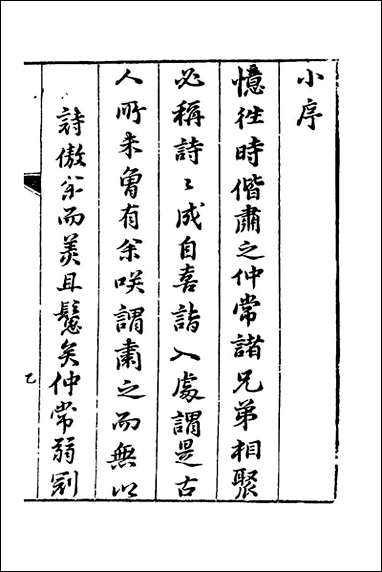 小序
憶往時偕肅之仲常諸兄弟相聚
必稱詩〻成自喜詣入處謂是古
人所未曾有余咲謂肅之而無以
詩傲余而美且鬈矣仲常弱冠
乙